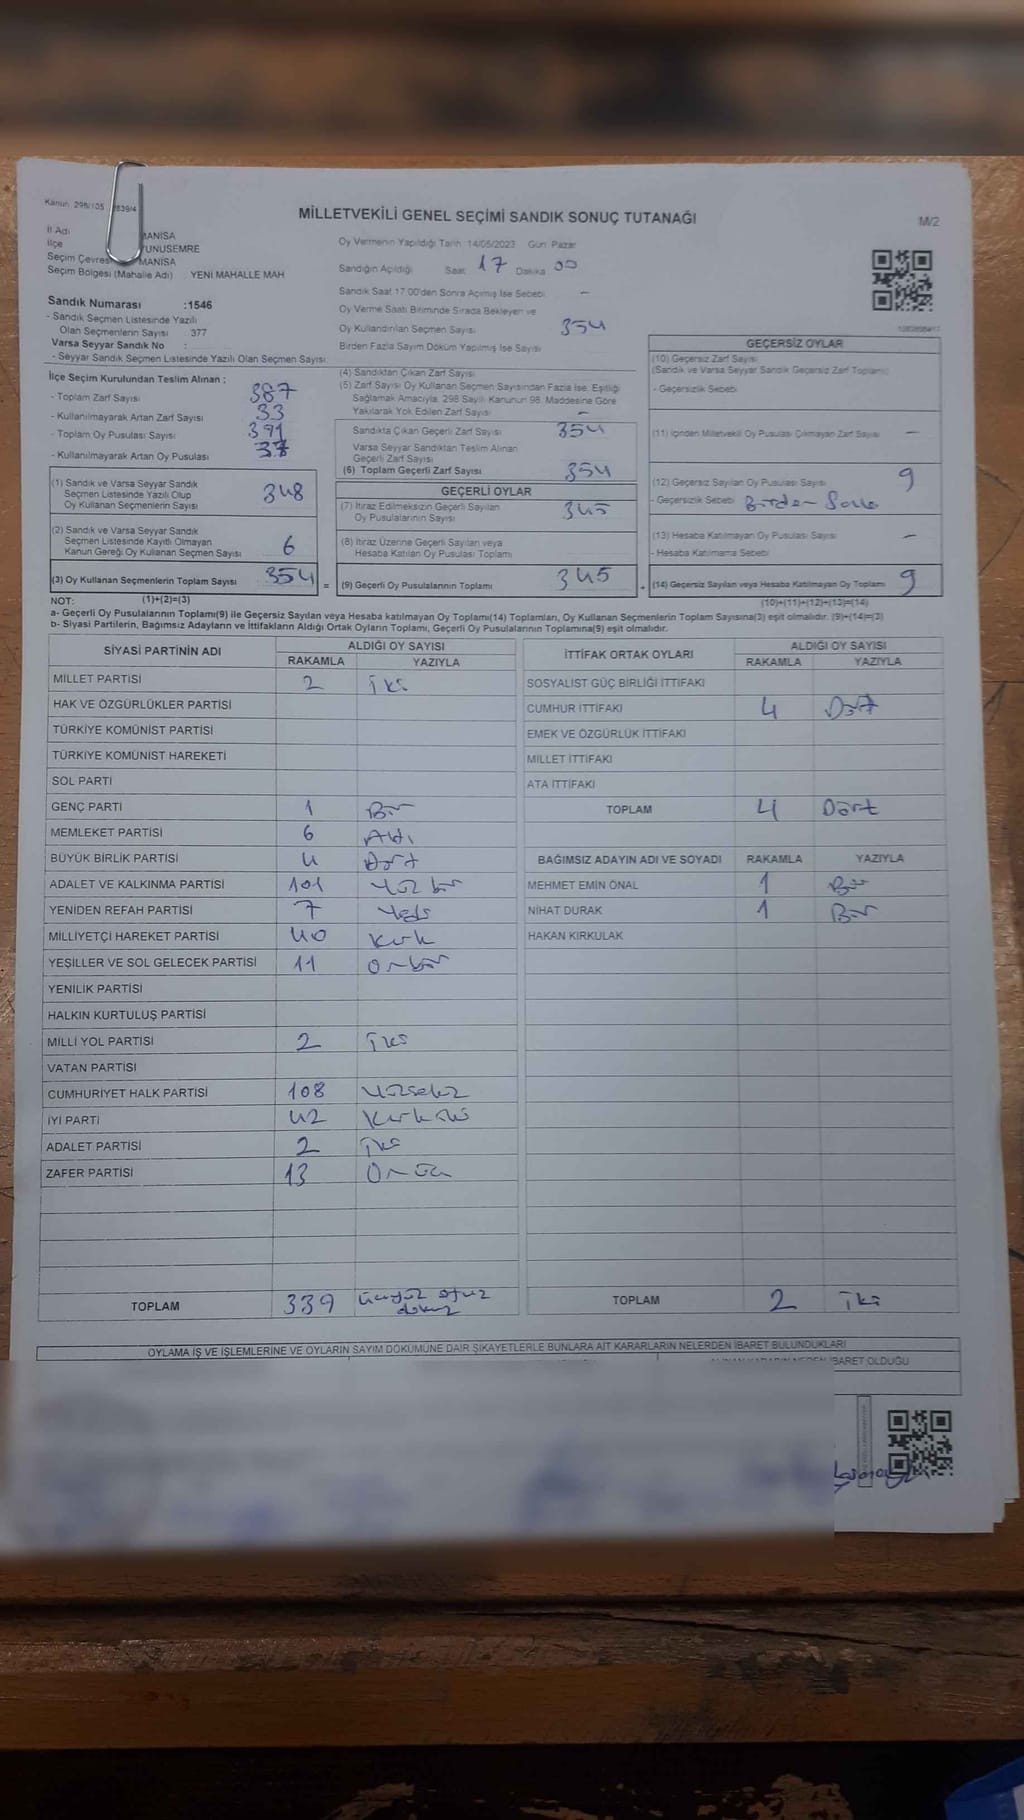 Kanun: 298/105 2839/4
MİLLETVEKİLİ GENEL SEÇİMİ SANDIK SONUÇ TUTANAĞI
M/2
İl Adı MANİSA
İlçe YUNUSEMRE
Seçim Çevresi MANİSA
Seçim Bölgesi (Mahalle Adı) : YENİ MAHALLE MAH
Oy Vermenin Yapıldığı Tarih: 14/05/2023 Gün: Pazar
Sandığın Açıldığı Saat 17 Dakika 00
Sandık Saat 17:00'den Sonra Açılmış İse Sebebi: -
Oy Verme Saati Bitiminde Sırada Bekleyen ve
Oy Kullandırılan Seçmen Sayısı 354
Birden Fazla Sayım Döküm Yapılmış İse Sayısı
Sandık Numarası :1546
- Sandık Seçmen Listesinde Yazılı
Olan Seçmenlerin Sayısı : 377
Varsa Seyyar Sandık No :
- Seyyar Sandık Seçmen Listesinde Yazılı Olan Seçmen Sayısı:
İlçe Seçim Kurulundan Teslim Alınan :
- Toplam Zarf Sayısı 387
- Kullanılmayarak Artan Zarf Sayısı 33
- Toplam Oy Pusulası Sayısı 391
- Kullanılmayarak Artan Oy Pusulası 37
(1) Sandık ve Varsa Seyyar Sandık
Seçmen Listesinde Yazılı Olup
Oy Kullanan Seçmenlerin Sayısı 348
(2) Sandık ve Varsa Seyyar Sandık
Seçmen Listesinde Kayıtlı Olmayan
Kanun Gereği Oy Kullanan Seçmen Sayısı 6
(3) Oy Kullanan Seçmenlerin Toplam Sayısı 354 =
(4) Sandıktan Çıkan Zarf Sayısı
(5) Zarf Sayısı Oy Kullanan Seçmen Sayısından Fazla İse, Eşitliği
Sağlamak Amacıyla, 298 Sayılı Kanunun 98. Maddesine Göre
Yakılarak Yok Edilen Zarf Sayısı -
Sandıkta Çıkan Geçerli Zarf Sayısı 354
Varsa Seyyar Sandıktan Teslim Alınan
Geçerli Zarf Sayısı
(6) Toplam Geçerli Zarf Sayısı 354
GEÇERLİ OYLAR
(7) İtiraz Edilmeksizin Geçerli Sayılan
Oy Pusulalarının Sayısı 345
(8) İtiraz Üzerine Geçerli Sayılan veya
Hesaba Katılan Oy Pusulası Toplamı
(9) Geçerli Oy Pusulalarının Toplamı 345 +
GEÇERSİZ OYLAR
(10) Geçersiz Zarf Sayısı
(Sandık ve Varsa Seyyar Sandık Geçersiz Zarf Toplamı)
- Geçersizlik Sebebi
(11) İçinden Milletvekili Oy Pusulası Çıkmayan Zarf Sayısı -
(12) Geçersiz Sayılan Oy Pusulası Sayısı 9
- Geçersizlik Sebebi Birden
(13) Hesaba Katılmayan Oy Pusulası Sayısı -
- Hesaba Katılmama Sebebi
(14) Geçersiz Sayılan veya Hesaba Katılmayan Oy Toplamı 9
NOT: (1)+(2)=(3) (10)+(11)+(12)+(13)=(14)
a- Geçerli Oy Pusulalarının Toplamı(9) ile Geçersiz Sayılan veya Hesaba katılmayan Oy Toplamı(14) Toplamları, Oy Kullanan Seçmenlerin Toplam Sayısına(3) eşit olmalıdır. (9)+(14)=(3)
b- Siyasi Partilerin, Bağımsız Adayların ve İttifakların Aldığı Ortak Oyların Toplamı, Geçerli Oy Pusulalarının Toplamına(9) eşit olmalıdır.
SİYASİ PARTİNİN ADI ALDIĞI OY SAYISI
RAKAMLA YAZIYLA
MİLLET PARTİSİ 2 iki
HAK VE ÖZGÜRLÜKLER PARTİSİ
TÜRKİYE KOMÜNİST PARTİSİ
TÜRKİYE KOMÜNİST HAREKETİ
SOL PARTİ
GENÇ PARTİ 1 Bir
MEMLEKET PARTİSİ 6 Altı
BÜYÜK BİRLİK PARTİSİ 4 Dört
ADALET VE KALKINMA PARTİSİ 101 Yüz bir
YENİDEN REFAH PARTİSİ 7 Yedi
MİLLİYETÇİ HAREKET PARTİSİ 40 Kırk
YEŞİLLER VE SOL GELECEK PARTİSİ 11 Onbir
YENİLİK PARTİSİ
HALKIN KURTULUŞ PARTİSİ
MİLLİ YOL PARTİSİ 2 iki
VATAN PARTİSİ
CUMHURİYET HALK PARTİSİ 108 Yüzsekiz
İYİ PARTİ 42 Kırkiki
ADALET PARTİSİ 2 iki
ZAFER PARTİSİ 13 Onüç
TOPLAM 339 üçyüz otuz dokuz
İTTİFAK ORTAK OYLARI ALDIĞI OY SAYISI
RAKAMLA YAZIYLA
SOSYALİST GÜÇ BİRLİĞİ İTTİFAKI
CUMHUR İTTİFAKI 4 Dört
EMEK VE ÖZGÜRLÜK İTTİFAKI
MİLLET İTTİFAKI
ATA İTTİFAKI
TOPLAM 4 Dört
BAĞIMSIZ ADAYIN ADI VE SOYADI RAKAMLA YAZIYLA
MEHMET EMİN ÖNAL 1 Bir
NİHAT DURAK 1 Bir
HAKAN KIRKULAK
TOPLAM 2 iki
OYLAMA İŞ VE İŞLEMLERİNE VE OYLARIN SAYIM DÖKÜMÜNE DAİR ŞİKAYETLERLE BUNLARA AİT KARARLARIN NELERDEN İBARET BULUNDUKLARI
ALINAN KARARIN NEDEN İBARET OLDUĞU